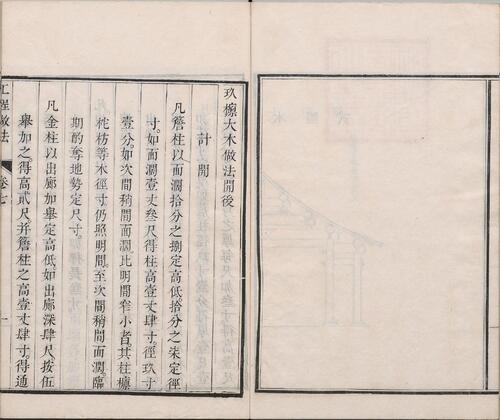 玖檩大木做法開後
計開
凡簷柱以面濶拾分之捌定高低拾分之柒定徑
寸如面濶壹丈叁尺得柱高壹丈肆寸徑玖寸
壹分如次間稍間面濶比明間窄小者其柱檩
柁枋等木徑寸仍照明間至次間稍間面濶臨
期酌奪地勢定尺寸
凡金柱以出廊加舉定高低如出廊深肆尺按伍
舉加之得高貳尺并簷柱之高壹丈肆寸得通
工程做法
卷七
一